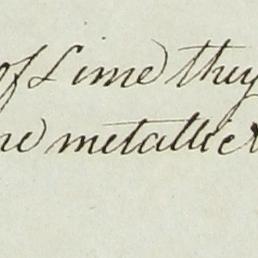 of Lime they
metallic